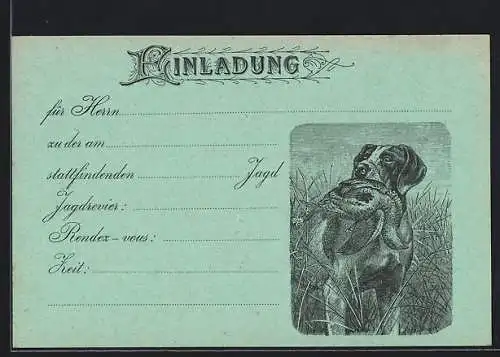 EINLADUNG
für Herrn
zu der am
stattfindenden Jagd
Jagdrevier:
Rendez-vous:
Zeit: